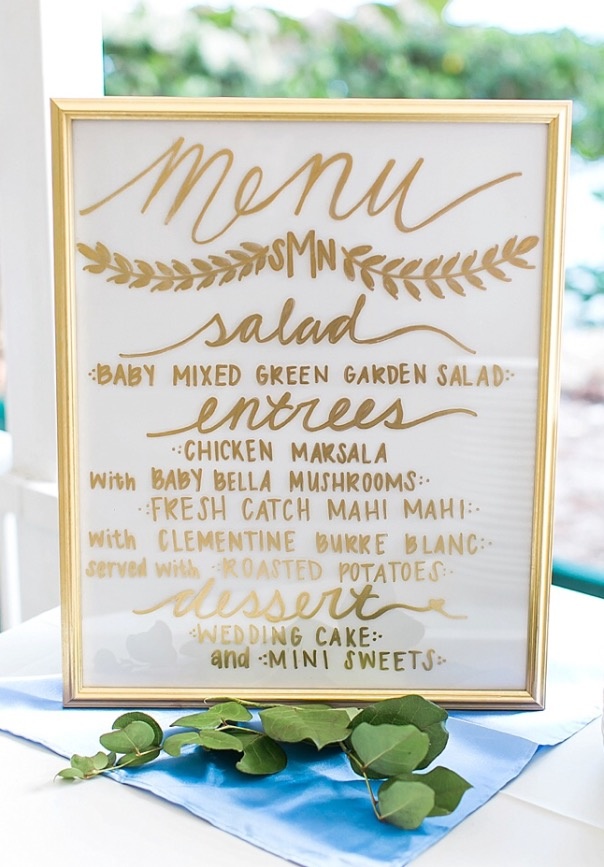 menu
SMN
salad
·:BABY MIXED GREEN GARDEN SALAD:·
entrees
·:CHICKEN MARSALA
with BABY BELLA MUSHROOMS:·
·:FRESH CATCH MAHI MAHI:·
with CLEMENTINE BURRE BLANC:·
served with ·:ROASTED POTATOES:·
dessert
·:WEDDING CAKE:·
and ·:MINI SWEETS:·